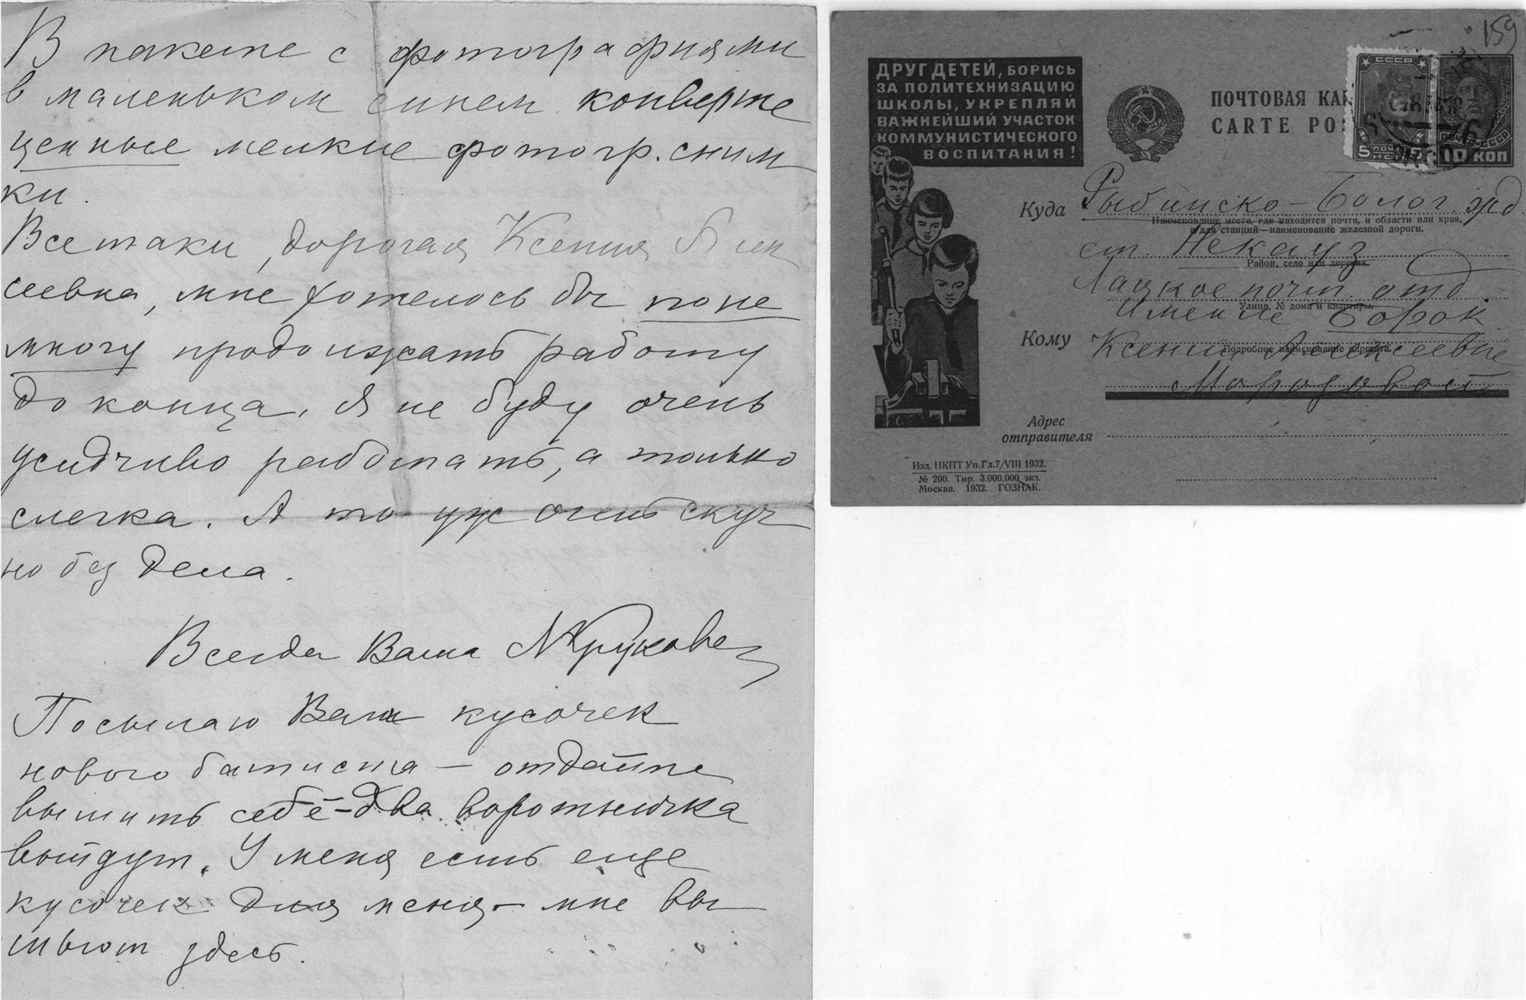 В пакете с фотографиями
в маленьком синем конверте
ценные мелкие фотогр. сним
ки.
Всетаки, дорогая Ксения Алек
сеевна, мне хотелось бы поне
многу продолжать работу
до конца. Я не буду очень
усидчиво работать, а только
слегка. А то уж очень скуч
но без дела.
Всегда Ваша
Посылаю Вам кусочек
нового батиста — отдайте
вышить себе – два воротничка
выйдут. У меня есть еще
кусочек для меня – мне вы
шьют здесь.
159
ДРУГ ДЕТЕЙ, БОРИСЬ
ЗА ПОЛИТЕХНИЗАЦИЮ
ШКОЛЫ, УКРЕПЛЯЙ
ВАЖНЕЙШИЙ УЧАСТОК
КОММУНИСТИЧЕСКОГО
ВОСПИТАНИЯ!
ПОЧТОВАЯ КАР
CARTE POS
СССР
5 5
10 КОП
Куда Рыбинско – Болог. жд.
Наименование места, где находится почта, и области или края,
а для станций—наименование железной дороги.
ст. Некауз
Район, село или деревня.
Лацкое почт. отд.
Улица, № дома и квартиры.
Имение Борок
Кому Ксении Алексеевне
Подробное наименование адресата.
Морозовой
Адрес
отправителя
Изд. НКПТ Уп. Гл. 7/VIII 1932.
№ 200. Тир. 3.000.000 экз.
Москва. 1932. ГОЗНАК.